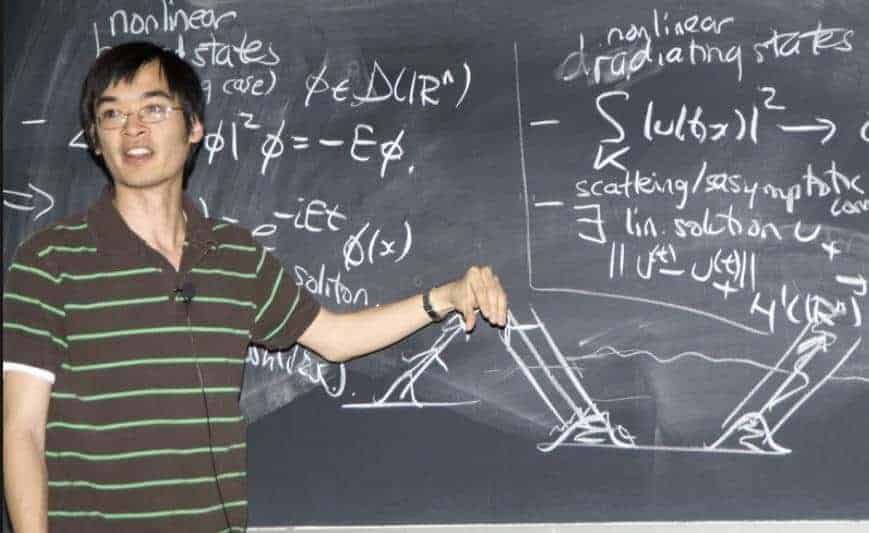 nonlinear
states
case)
ϕ ∈ D(ℝⁿ)
ϕ|²ϕ = -Eϕ.
⇒
e^{-iEt} ϕ(x)
soliton
nonlinear
radiating states
- ∫_K |u(t,x)|² →
- scatteing/sasymptotic
∃ lin. solution u₊
||u(t) - u₊(t)||
H¹(ℝⁿ)